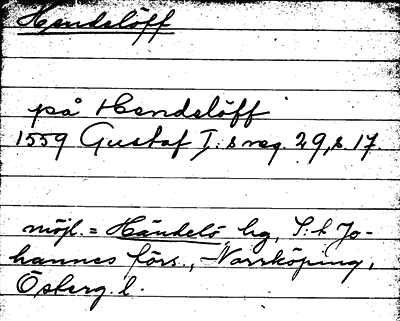 Hendelöff
på Hendelöff
1559 Gustaf I:s reg. 29, s 17.
möjl. = Händelö hg, S:t Jo-
hannes förs., Norrköping,
Östierg. l.